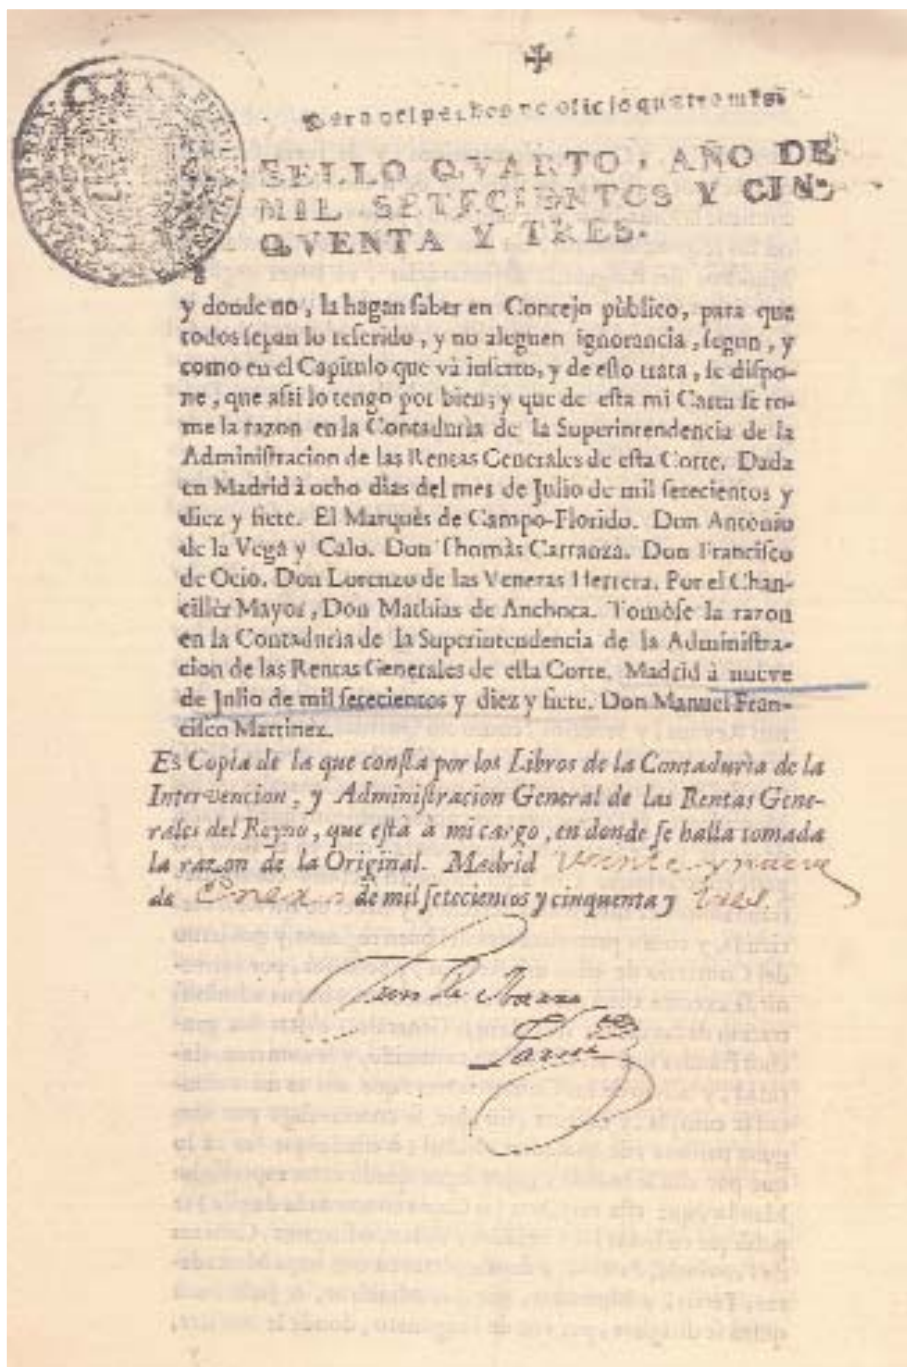 ✠
Para despachos de oficio quatro mrs.
SELLO QVARTO, AÑO DE
MIL SETECIENTOS Y CIN-
QVENTA Y TRES.
y donde no, la hagan saber en Concejo pùblico, para que
todos sepan lo referido, y no aleguen ignorancia, segun, y
como en el Capitulo que và inserto, y de esto trata, se dispo-
ne, que assi lo tengo por bien; y que de esta mi Carta se to-
me la razon en la Contadurìa de la Superintendencia de la
Administracion de las Rentas Generales de esta Corte. Dada
en Madrid à ocho dias del mes de Julio de mil setecientos y
diez y siete. El Marquès de Campo-Florido. Don Antonio
de la Vega y Calo. Don Thomàs Carranza. Don Francisco
de Ocio. Don Lorenzo de las Veneras Herrera. Por el Chan-
cillèr Mayor, Don Mathias de Anchoca. Tomòse la razon
en la Contadurìa de la Superintendencia de la Administra-
cion de las Rentas Generales de esta Corte. Madrid à nueve
de Julio de mil setecientos y diez y siete. Don Manuel Fran-
cisco Martinez.
Es Copia de la que consta por los Libros de la Contadurìa de la
Intervencion, y Administracion General de las Rentas Gene-
rales del Reyno, que està à mi cargo, en donde se halla tomada
la razon de la Original. Madrid veinte y nueve
de Enero de mil setecientos y cinquenta y tres.